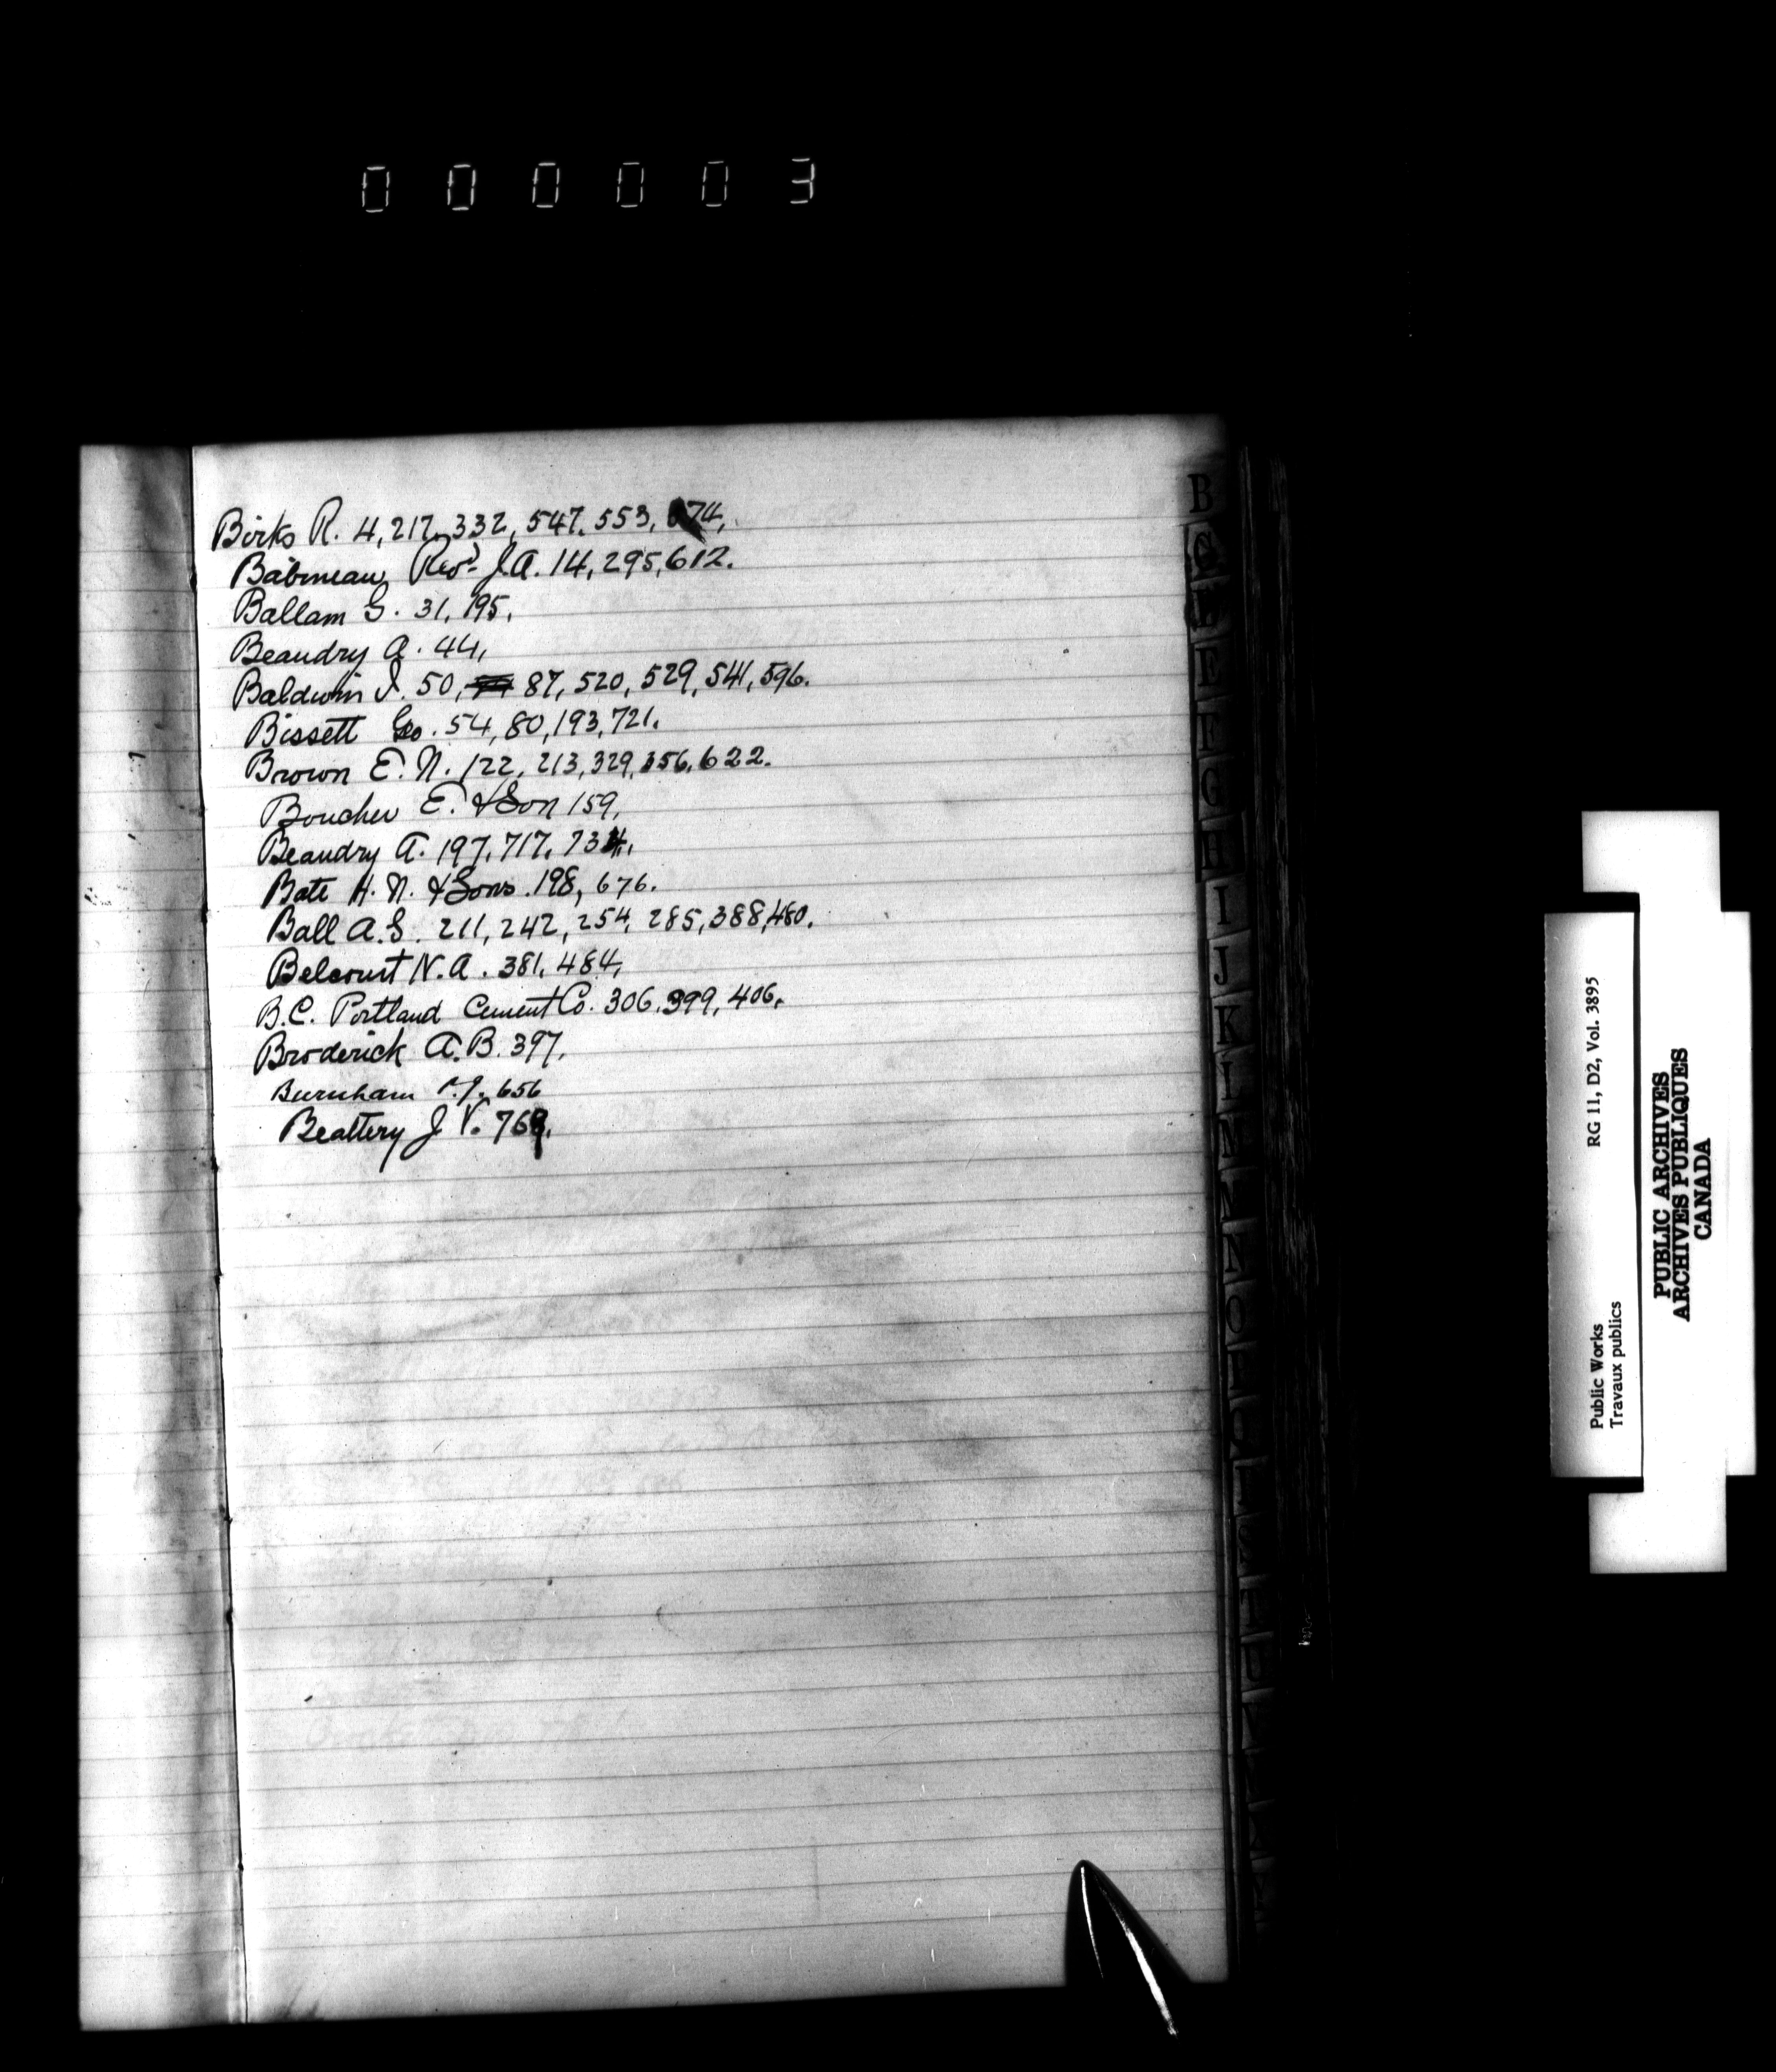 000003
Birks R. 4, 217, 332, 547, 553, 674,
Babineau Revd. J.A. 14, 295, 612.
Ballam G. 31, 195,
Beaudry A. 44,
Baldwin J. 50, 87, 520, 529, 541, 596.
Bissett Geo. 54, 80, 193, 721.
Brown E. N. 122, 213, 329, 356, 622.
Boucher E. & Son 159,
Beaudry A. 197, 717, 734,
Bate H. N. & Sons. 198, 676.
Ball A.S. 211, 242, 254, 285, 388, 480.
Belcourt N.A. 381, 484,
B.C. Portland Cement Co. 306, 399, 406,
Broderick A.B. 397,
Burnham 656
Beattery J V. 769.
B
C
E
F
G
H
I
J
K
M
N
O
Public Works RG 11, D2, Vol. 3895
Travaux publics
PUBLIC ARCHIVES
ARCHIVES PUBLIQUES
CANADA